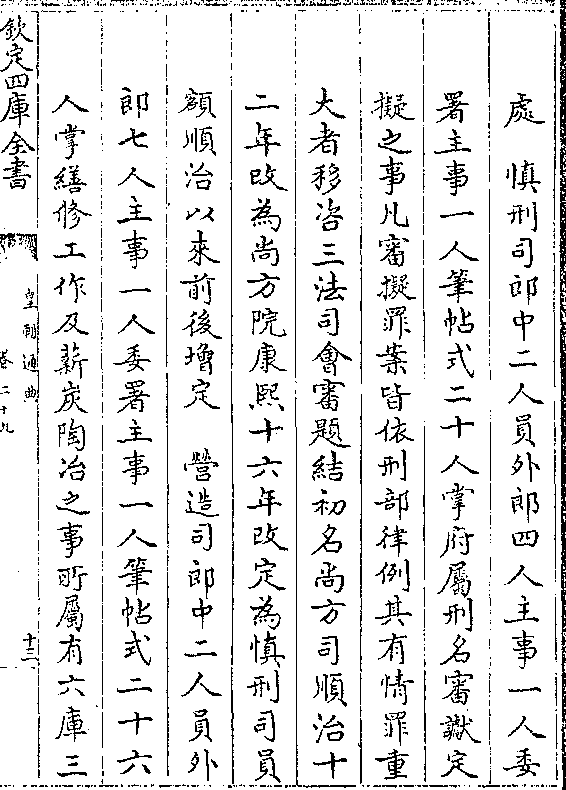 處　慎刑司郎中二人員外郎四人主事一人委
署主事一人筆帖式二十人掌府屬刑名審讞定
擬之事凡審擬罪案皆依刑部律例其有情罪重
大者移咨三法司會審題結初名尚方司順治十
二年改為尚方院康熙十六年改定為慎刑司員
額順治以來前後增定　營造司郎中二人員外
郎七人主事一人委署主事一人筆帖式二十六
人掌繕修工作及薪炭陶冶之事所屬有六庫三
欽定四庫全書
皇朝通典
卷二十九
十三